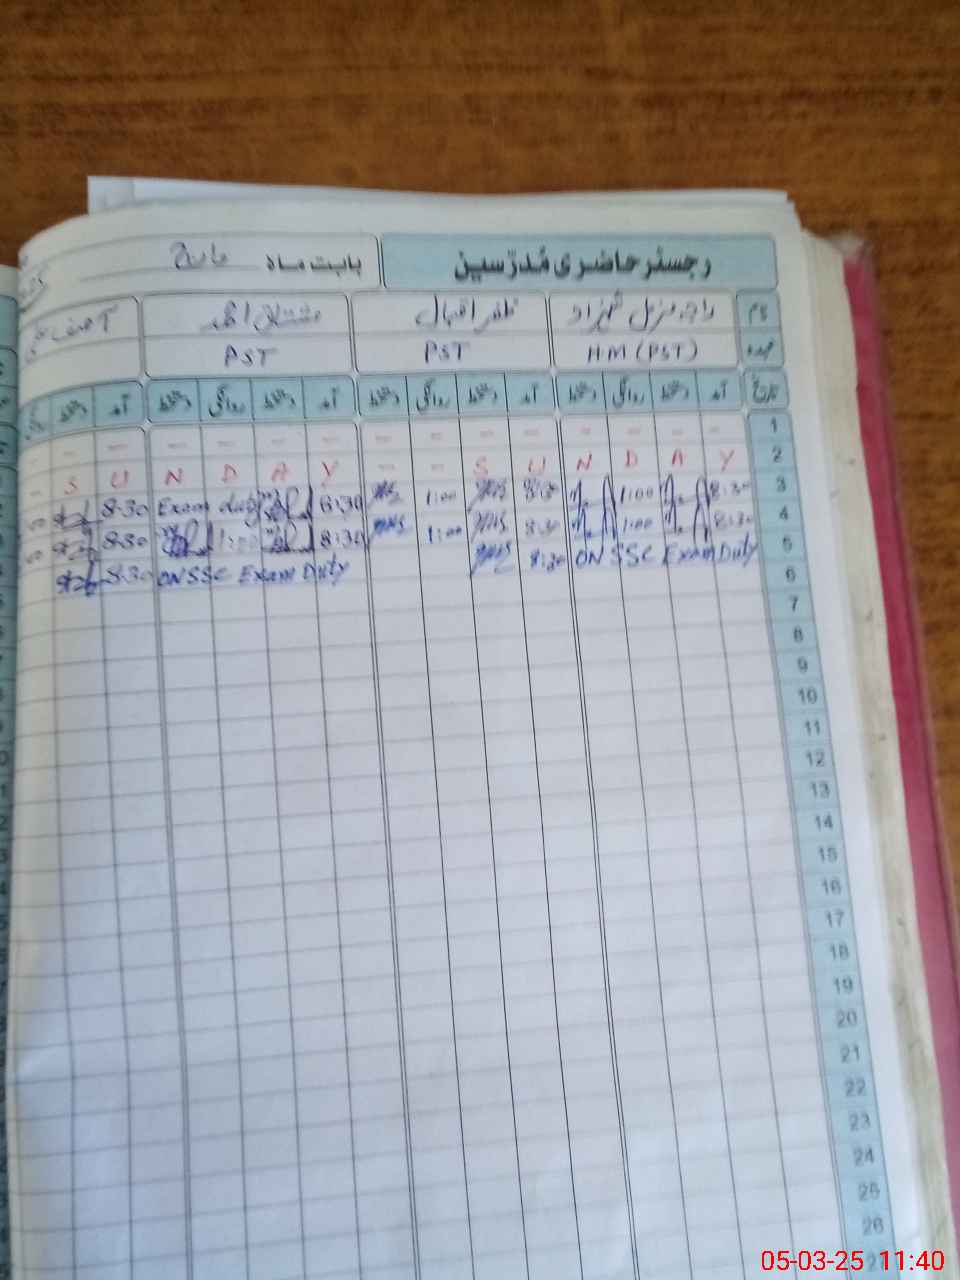 رجسٹر حاضری مُدرّسین بابت ماہ مارچ
نام راجہ مزمل شہزاد ظفر اقبال مشتاق احمد آصف
عہدہ H.M (PST) PST PST
تاریخ آمد دستخط روانگی دستخط آمد دستخط روانگی دستخط آمد دستخط روانگی دستخط آمد دستخط
1 - - - - - - - - - - - - - -
2 S U N D A Y - - S U N D A Y
3 8:30 Exam duty 8:30 1:00 8:30 1:00 8:30
4 8:30 1:00 8:30 1:00 8:30 1:00 8:30
5 8:30 ON SSC Exam Duty 8:30 ON SSC Exam Duty
6
7
8
9
10
11
12
13
14
15
16
17
18
19
20
21
22
23
24
25
26
05-03-25 11:40